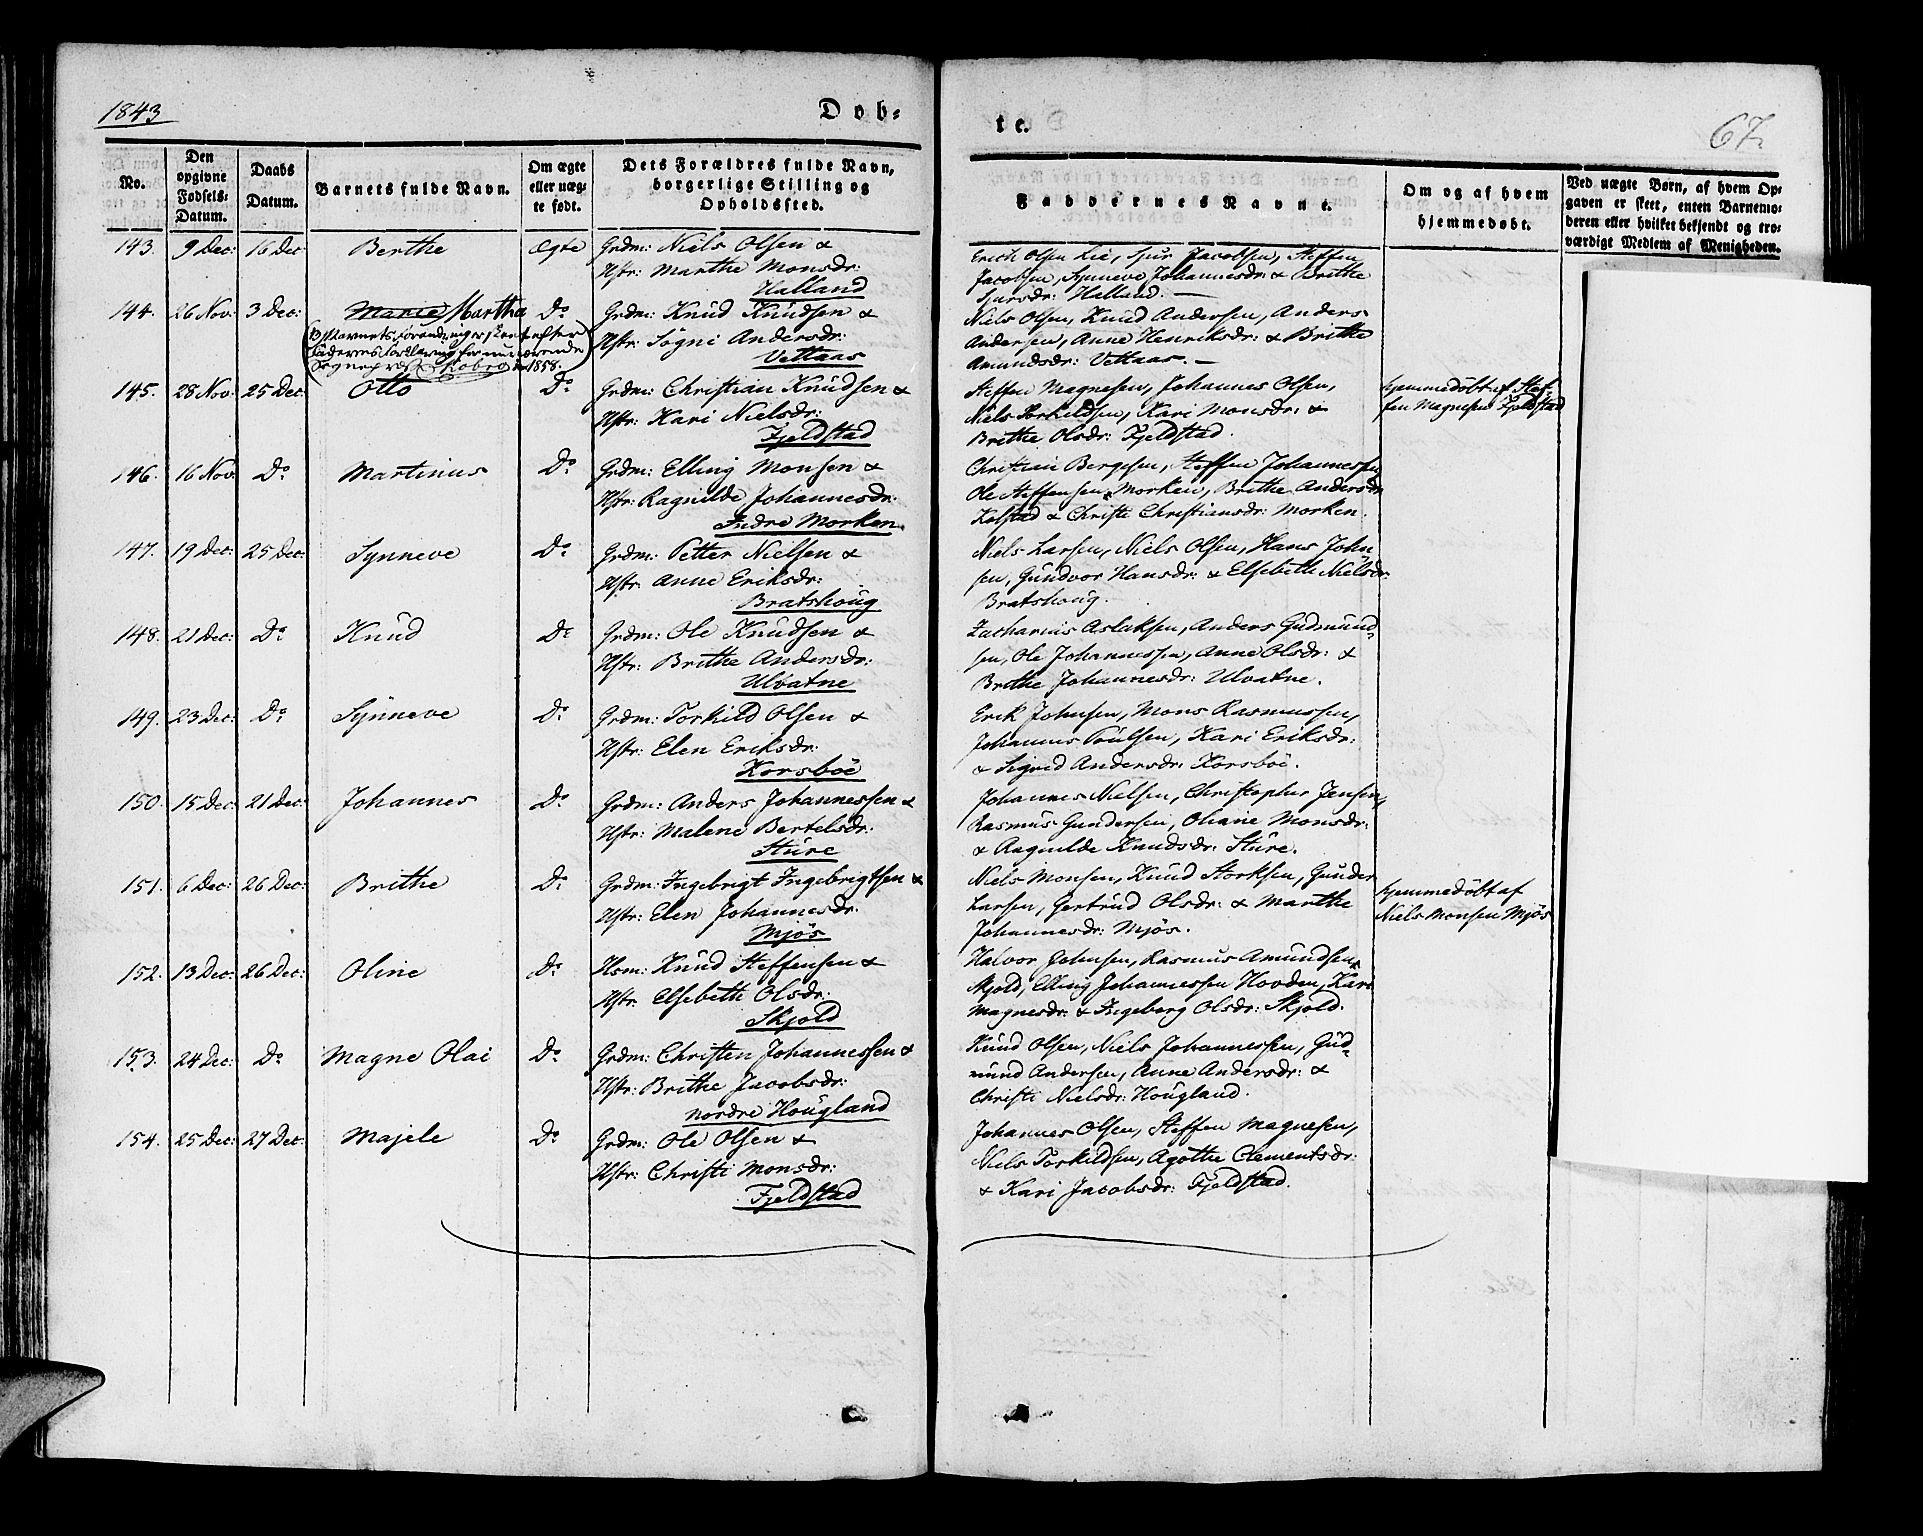 1843
Dob-
te.
67.
No.
Den opgivne Fødsels-Datum.
Daabs Datum.
Barnets fulde Navn.
Om ægte eller uægte født.
Dets Forældres fulde Navn, borgerlige Stilling og Opholdssted.
Faddernes Navne.
Om og af hvem hjemmedøbt.
Ved uægte Børn, af hvem Opgaven er skeet, enten Barnemoderen eller hvilket bekjendt og troværdigt Medlem af Menigheden.
143. 9 Dec: 16 Dec Berthe Ægte Grdm: Niels Olsen &
Hstr: Marthe Monsdr:
Halland
Erich Olsen Lie, Sjur Jacobsen, Steffen
Jacobsen, Synneve Johannesdr: & Brithe
Sjursdr: Halland. —
144. 26 Nov: 3 Dec: Marie Martha Do Grdm: Knud Knudsen &
Hstr: Sögni Andersdr:
Vettaas
(NB Navnets Forandring er skeet efter
Faderens Forklaring for nuværende
Sognepræst 1858.)
Niels Olsen, Knud Andersen, Anders
Andersen, Anne Henriksdr: & Brithe
Amundsdr: Vettaas. —
145. 28 Nov: 25 Dec: Otto Do Grdm: Christian Knudsen &
Hstr: Kari Nielsdr:
Fjeldstad
Steffen Magnesen, Johannes Olsen,
Niels Torkildsen, Kari Monsdr: &
Brithe Olsdr: Fjeldstad.
hjemmedöbt af Stef-
fen Magnesen Fjeldstad
146. 16 Nov: Do Martinus Do Grdm: Elling Monsen &
Hstr: Ragnilde Johannesdr:
Indre Morken.
Christian Bergesen, Steffen Johannessen,
Ole Steffensen Morken, Brithe Andersdr:
Kolstad & Christi Christiansdr: Morken.
147. 19 Dec: 25 Dec: Synneve Do Grdm: Petter Nielsen &
Hstr: Anne Eriksdr:
Bratshoug
Niels Larsen, Niels Olsen, Hans John-
sen, Gundvor Hansdr: & Elsebeth Nielsdr:
Bratshoug.
148. 21 Dec: Do Knud Do Grdm: Ole Knudsen &
Hstr: Brithe Andersdr:
Ulvatne
Zacharias Aslaksen, Anders Gudmund-
sen, Ole Johannessen, Anne Olsdr: &
Brithe Johannesdr: Ulvatne.
149. 23 Dec: Do Synneve Do Grdm: Torkild Olsen &
Hstr: Elen Eriksdr:
Korsböe
Erik Johnsen, Mons Rasmussen,
Johannes Poulsen, Kari Eriksdr:
& Sigrid Andersdr: Korsböe.
150. 15 Dec: 21 Dec: Johannes Do Grdm: Anders Johannessen &
Hstr: Malene Bertelsdr:
Sture
Johannes Nielsen, Christopher Jensen,
Rasmus Gundersen, Oliane Monsdr:
& Ragnilde Knudsdr: Sture.
151. 6 Dec: 26 Dec: Brithe Do Grdm: Ingebrigt Ingebrigtsen &
Hstr: Elen Johannesdr:
Mjös
Niels Monsen, Knud Storksen, Gunder
Larsen, Gertrud Olsdr: & Marthe
Johannesdr: Mjös.
hjemmedöbt af
Niels Monsen Mjös
152. 13 Dec: 26 Dec: Oline Do Hsm: Knud Steffensen &
Hstr: Elsebeth Olsdr:
Skjold
Halvor Johnsen, Rasmus Amundsen
Skjold, Elling Johannessen Hovden, Kari
Magnesdr: & Ingeborg Olsdr: Skjold.
153. 24 Dec: Do Magne Olai Do Grdm: Christen Johannessen &
Hstr: Brithe Jacobsdr:
nordre Hougland
Knud Olsen, Niels Johannessen, Gud-
mund Andersen, Anne Andersdr: &
Christi Nielsdr: Hougland.
154. 25 Dec: 27 Dec: Majele Do Grdm: Ole Olsen &
Hstr: Christi Monsdr:
Fjeldstad
Johannes Olsen, Steffen Magnesen,
Niels Torkildsen, Agothe Clementsdr:
& Kari Jacobsdr: Fjeldstad.